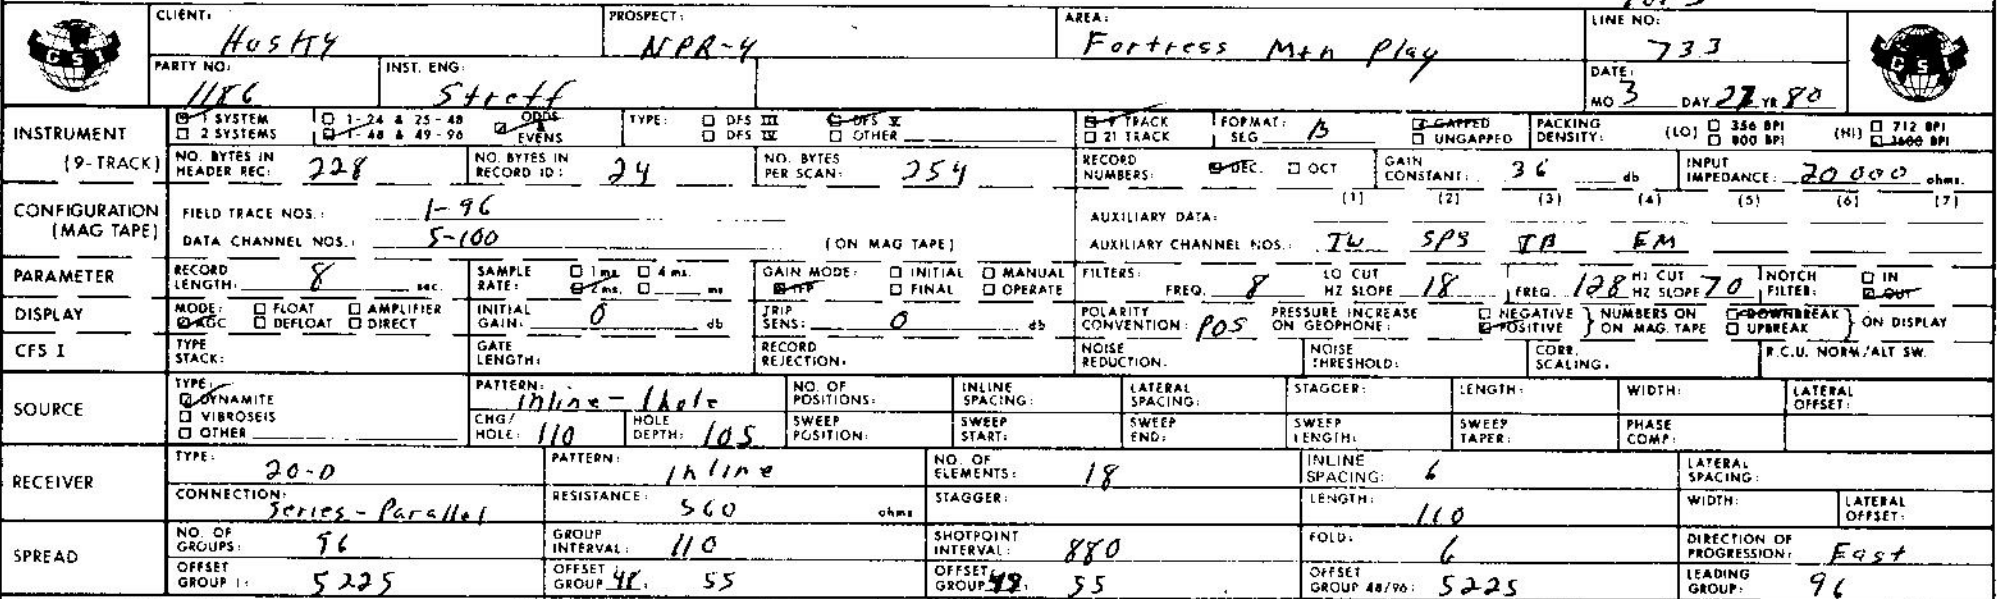 CLIENT: Husky PROSPECT: NPR-4 AREA: Fortress Mtn Play LINE NO: 733
PARTY NO: 1186 INST. ENG: Streff DATE: MO 3 DAY 27 YR 80
GSI
GSI
INSTRUMENT (9-TRACK)
1 SYSTEM 1-24 & 25-48 ODDS & EVENS TYPE: DFS III DFS V 9 TRACK FORMAT: SEG B GAPPED PACKING DENSITY: (LO) 356 BPI (HI) 712 BPI
2 SYSTEMS 1-48 & 49-96 DFS IV OTHER 21 TRACK UNGAPPED 800 BPI 1600 BPI
NO. BYTES IN HEADER REC: 228 NO. BYTES IN RECORD ID: 24 NO. BYTES PER SCAN: 254 RECORD NUMBERS: DEC. OCT GAIN CONSTANT: 36 db INPUT IMPEDANCE: 20000 ohms.
CONFIGURATION (MAG TAPE)
FIELD TRACE NOS.: 1-96 AUXILIARY DATA: (1) (2) (3) (4) (5) (6) (7)
DATA CHANNEL NOS.: 5-100 (ON MAG TAPE) AUXILIARY CHANNEL NOS.: TW SPS TB EM
PARAMETER RECORD LENGTH: 8 sec. SAMPLE RATE: 1 ms. 4 ms. 2 ms. ms GAIN MODE: INITIAL MANUAL IFP FINAL OPERATE FILTERS: FREQ. 8 LO CUT HZ SLOPE 18 FREQ. 128 HI CUT HZ SLOPE 70 NOTCH FILTER: IN OUT
DISPLAY MODE: FLOAT AMPLIFIER AGC DEFLOAT DIRECT INITIAL GAIN: 0 db TRIP SENS: 0 db POLARITY CONVENTION: POS PRESSURE INCREASE ON GEOPHONE: NEGATIVE POSITIVE NUMBERS ON ON MAG. TAPE DOWNBREAK UPBREAK ON DISPLAY
CFS I TYPE STACK: GATE LENGTH: RECORD REJECTION: NOISE REDUCTION: NOISE THRESHOLD: CORR. SCALING: R.C.U. NORM/ALT SW.
SOURCE TYPE: DYNAMITE VIBROSEIS OTHER PATTERN: Inline - 1 hole NO. OF POSITIONS: INLINE SPACING: LATERAL SPACING: STAGGER: LENGTH: WIDTH: LATERAL OFFSET:
CHG/HOLE: 110 HOLE DEPTH: 105 SWEEP POSITION: SWEEP START: SWEEP END: SWEEP LENGTH: SWEEP TAPER: PHASE COMP:
RECEIVER TYPE: 20-D PATTERN: Inline NO. OF ELEMENTS: 18 INLINE SPACING: 6 LATERAL SPACING:
CONNECTION: Series - Parallel RESISTANCE: 560 ohms STAGGER: LENGTH: 110 WIDTH: LATERAL OFFSET:
SPREAD NO. OF GROUPS: 96 GROUP INTERVAL: 110 SHOTPOINT INTERVAL: 880 FOLD: 6 DIRECTION OF PROGRESSION: East
OFFSET GROUP 1: 5225 OFFSET GROUP 48: 55 OFFSET GROUP 55 OFFSET GROUP 48/96: 5225 LEADING GROUP: 96